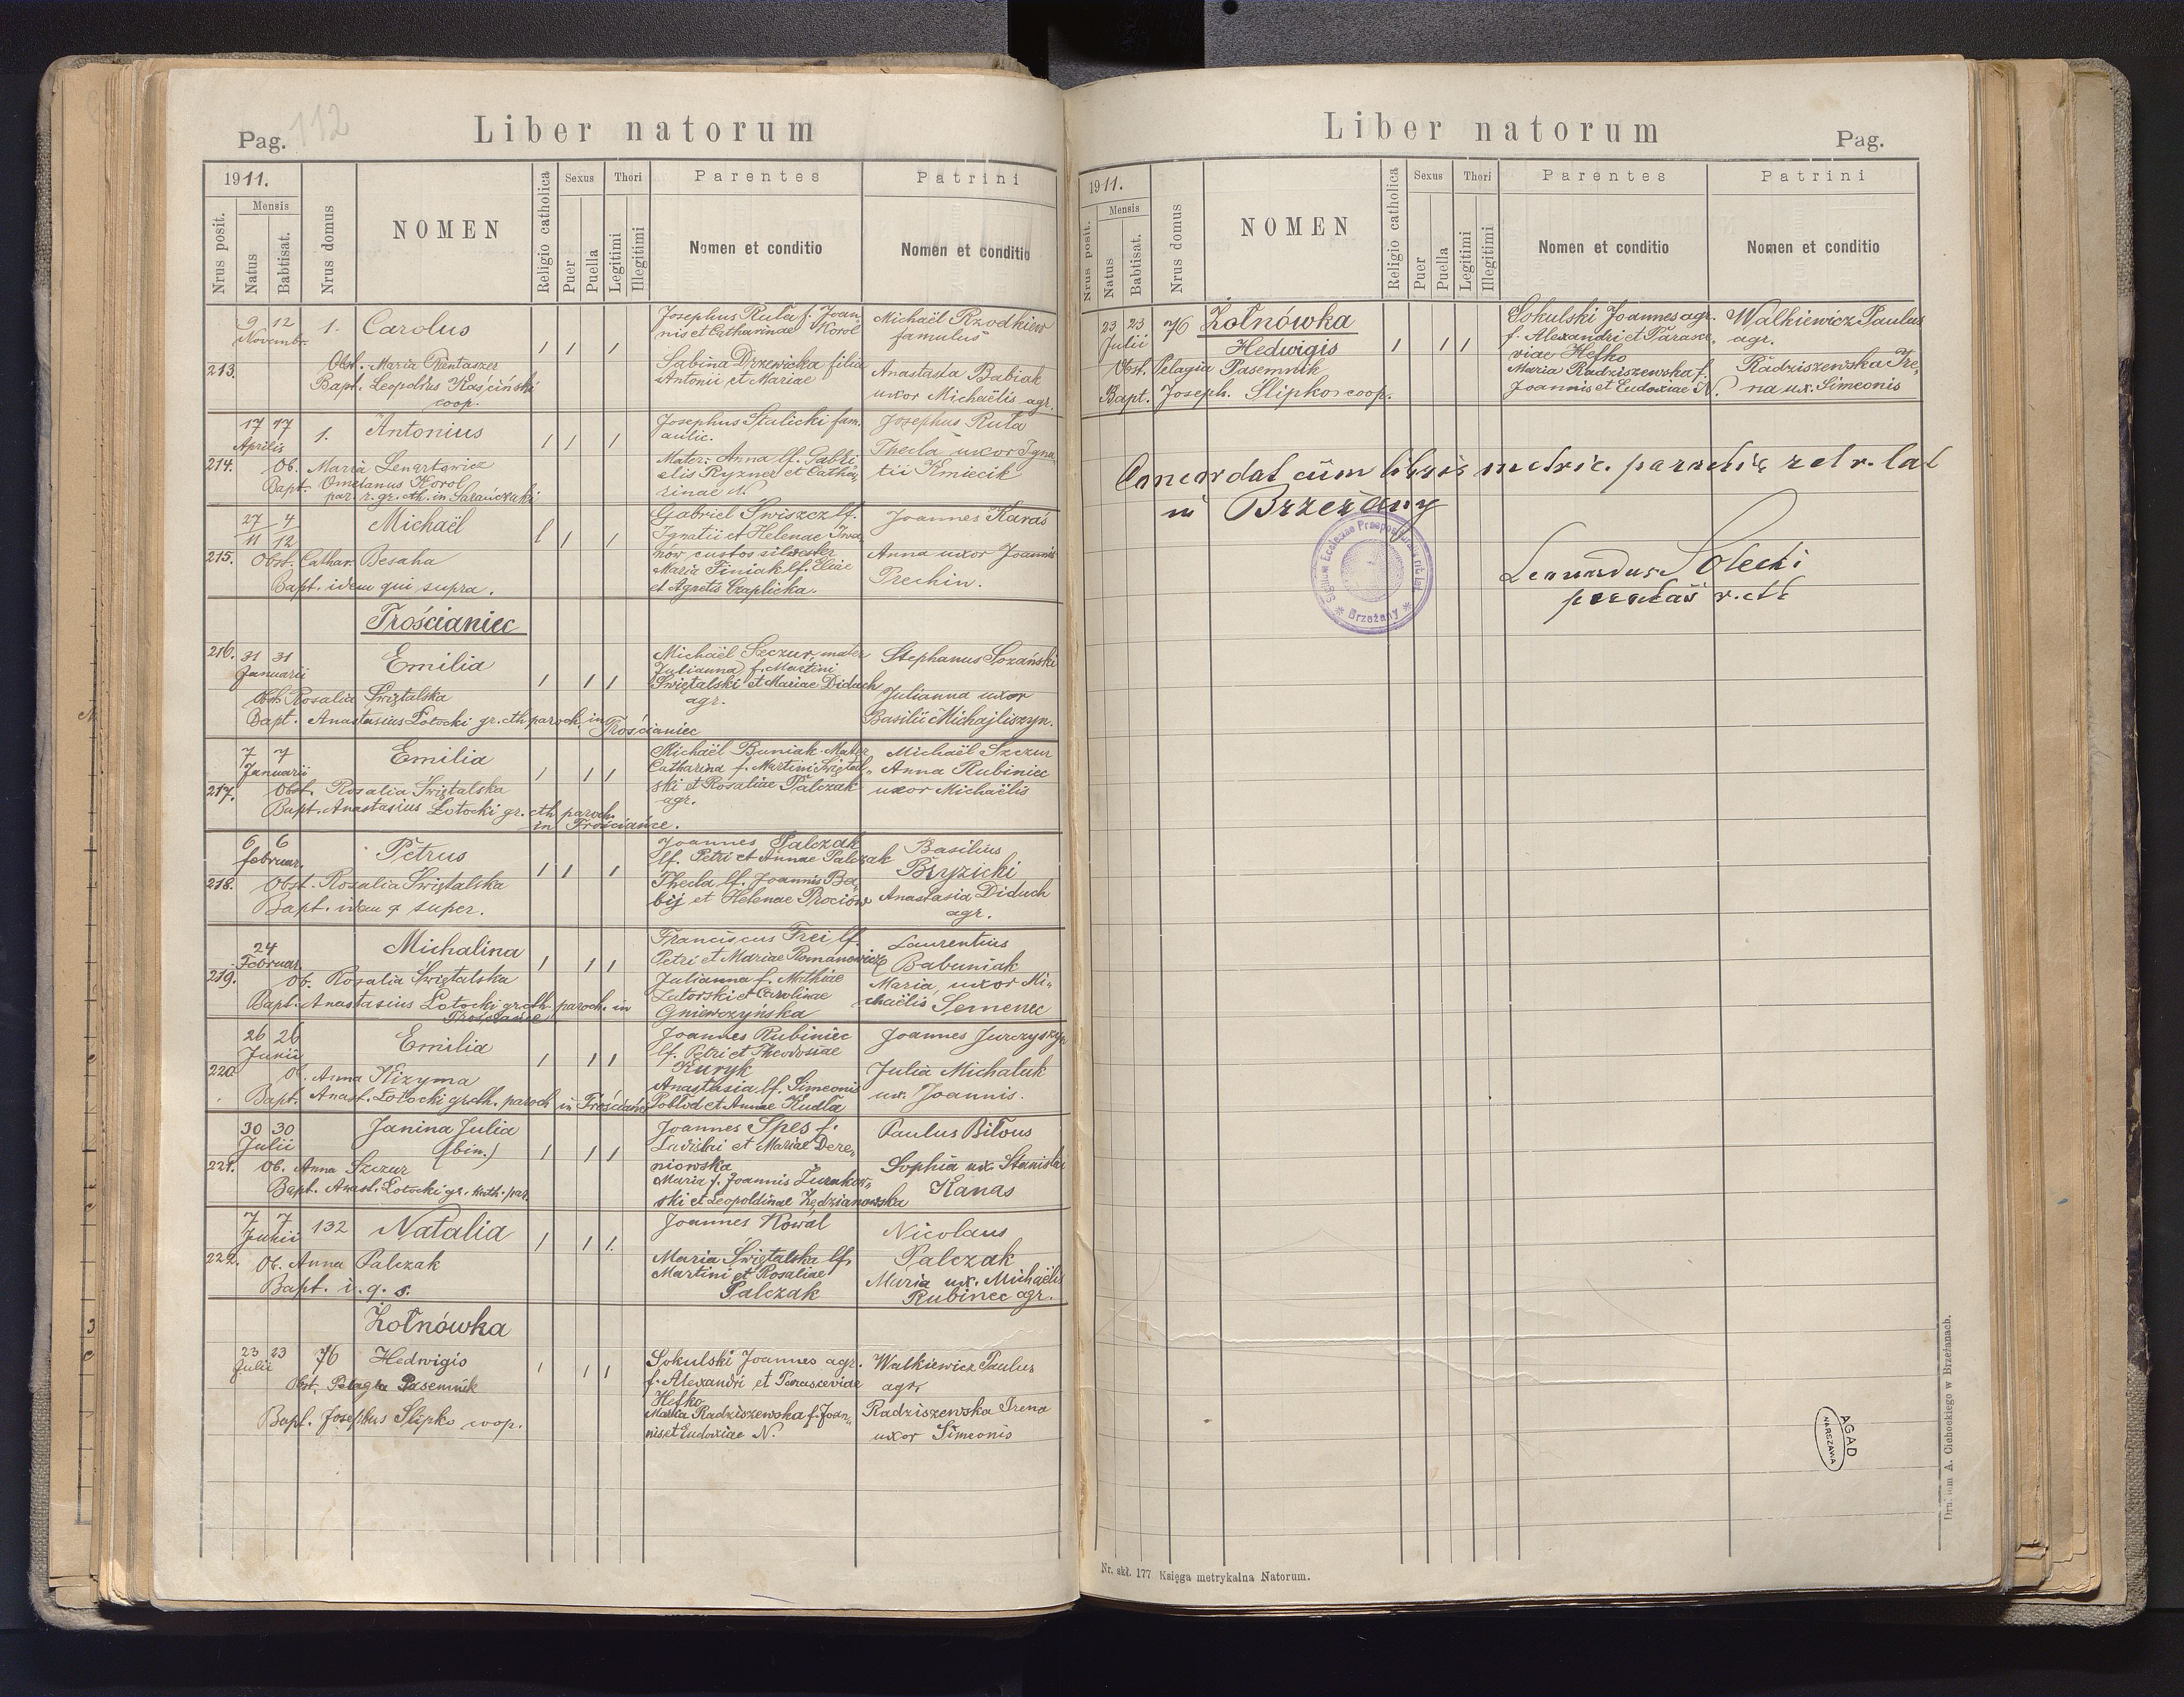 Pag. 112
Liber natorum
1911.
Mensis
Nrus posit.
Natus
Babtisat.
Nrus domus
NOMEN
Religio catholica
Sexus
Puer
Puella
Thori
Legitimi
Illegitimi
Parentes
Nomen et conditio
Patrini
Nomen et conditio
9 12
Novembr.
213.
1.
Carolus
Obst. Maria
Bapt. Leopoldus Kaściński
coop.
Josephus Ruta f. Joan
nis et Catharinae Korol
Sabina Drzewicka filia
Antonii et Mariae
Michaël Rzodkiew
famulus
Anastasia Babiak
uxor Michaëlis agr.
17 17
Aprilis
214.
1.
Antonius
Ob. Maria Lenartowicz
Bapt. Korol
par. r. gr. cth. in
Josephus Stalicki fam.
aulic.
Mater: Anna lf. Gabri
elis Ryzner et Catha,
rinae N.
Josephus Ruta
Thecla uxor Igna,
tii Kmiecik
27 4
11 12
215.
Michaël
Obst. Cathar. Besaha
Bapt. idem qui supra.
Gabriel Swiszcz lf.
Ignatii et Helenae Iwa
nów custos silvester
Maria Finiak lf. Eliae
et Agnetis Czaplicka.
Joannes Karaś
Anna uxor Joannis
Prechin.
Trościaniec
216. 31 31
Januarii
Emilia
Obst. Rosalia Świętalska
Bapt. Anastasius Łotocki gr. cth paroch. in
Trościaniec
Michaël Szczur, mater
Julianna f. Martini
Świętalski et Mariae Diduch
agr.
Stephanus Sozański
Julianna uxor
Basilii Michajliszyn.
7 7
Januarii
217.
Emilia
Obst. Rosalia Świętalska
Bapt. Anastasius Łotocki gr. cth paroch.
in Trościańce.
Michaël Buniak. Mater
Catharina f. Martini Świętal,
ski et Rosaliae Palczak
agr.
Michaël Szczur
Anna Rubiniec
uxor Michaëlis
6 6
februar.
218.
Petrus
Obst. Rosalia Świętalska
Bapt. idem q super.
Joannes Palczak
lf. Petri et Annae Palczak
Thecla lf. Joannis Ba,
bij et Helenae Prociów
Basilius
Bryzicki
Anastasia Diduch
agr.
24
Februar.
219.
Michalina
Ob. Rosalia Świętalska
Bapt. Anastasius Łotocki gr. cth. paroch. in
Trościańce
Franciscus Frei lf.
Petri et Mariae Romanowicz
Julianna f. Mathiae
Zatorski et Carolinae
Gniewczyńska
Laurentius
Babuniak
Maria, uxor Mi,
chaëlis Semenec
26 26
Junii
220.
Emilia
Ob. Anna Kizyma
Bapt. Anast. Łotocki gr. cth. paroch in Trościańce
Joannes Rubiniec
lf. Petri et Theodosiae
Kuryk
Anastasia lf. Simeonis
et Annae Kudla
Joannes Jurczyszyn
Julia Michaluk
ux. Joannis.
30 30
Julii
221.
Janina Julia
(bin.)
Ob. Anna Szczur
Bapt. Anast. Łotocki gr. kath. par.
Joannes Spes f.
Ladislai et Mariae Dere,
niowska
Maria f. Joannis Żurakow,
ski et Leopoldinae Kędzianowska
Paulus Biłous
Sophia ux. Stanislai
Kanas
7 7
Junii
222.
132
Natalia
Ob. Anna Palczak
Bapt. i. q. s.
Joannes Kowal
Maria Świętalska lf.
Martini et Rosaliae
Palczak
Nicolaus
Palczak
Maria ux. Michaëlis
Rubinec agr.
Żołnówka
23 23
Julii
76
Hedwigis
Obst. Pelagia Pasemnik
Bapt. Josephus Slipko coop.
Sokulski Joannes agr.
f. Alexandri et Parasceviae
Hefko
Maria Radziszewska f. Joan,
nis et Eudoxiae N.
Walkiewicz Paulus
agr.
Radziszewska Irena
uxor Simeonis
Liber natorum
Pag.
1911.
Mensis
Nrus posit.
Natus
Babtisat.
Nrus domus
NOMEN
Religio catholica
Sexus
Puer
Puella
Thori
Legitimi
Illegitimi
Parentes
Nomen et conditio
Patrini
Nomen et conditio
23 23
Julii
76
Żołnówka
Hedwigis
Obst. Pelagia Pasemnik
Bapt. Joseph. Slipko coop.
Sokulski Joannes agr.
f. Alexandri et Parasce,
viae Hefko
Maria Radziszewska f.
Joannis et Eudoxiae N.
Walkiewicz Paulus
agr.
Radziszewska Ire,
na ux. Simeonis
Concordat cum libris metric. parochiae rel r. lat
in Brzeżany
Brzeżany
Leonardus Solecki
AGAD
WARSZAWA
Nr. skł. 177 Księga metrykalna Natorum.